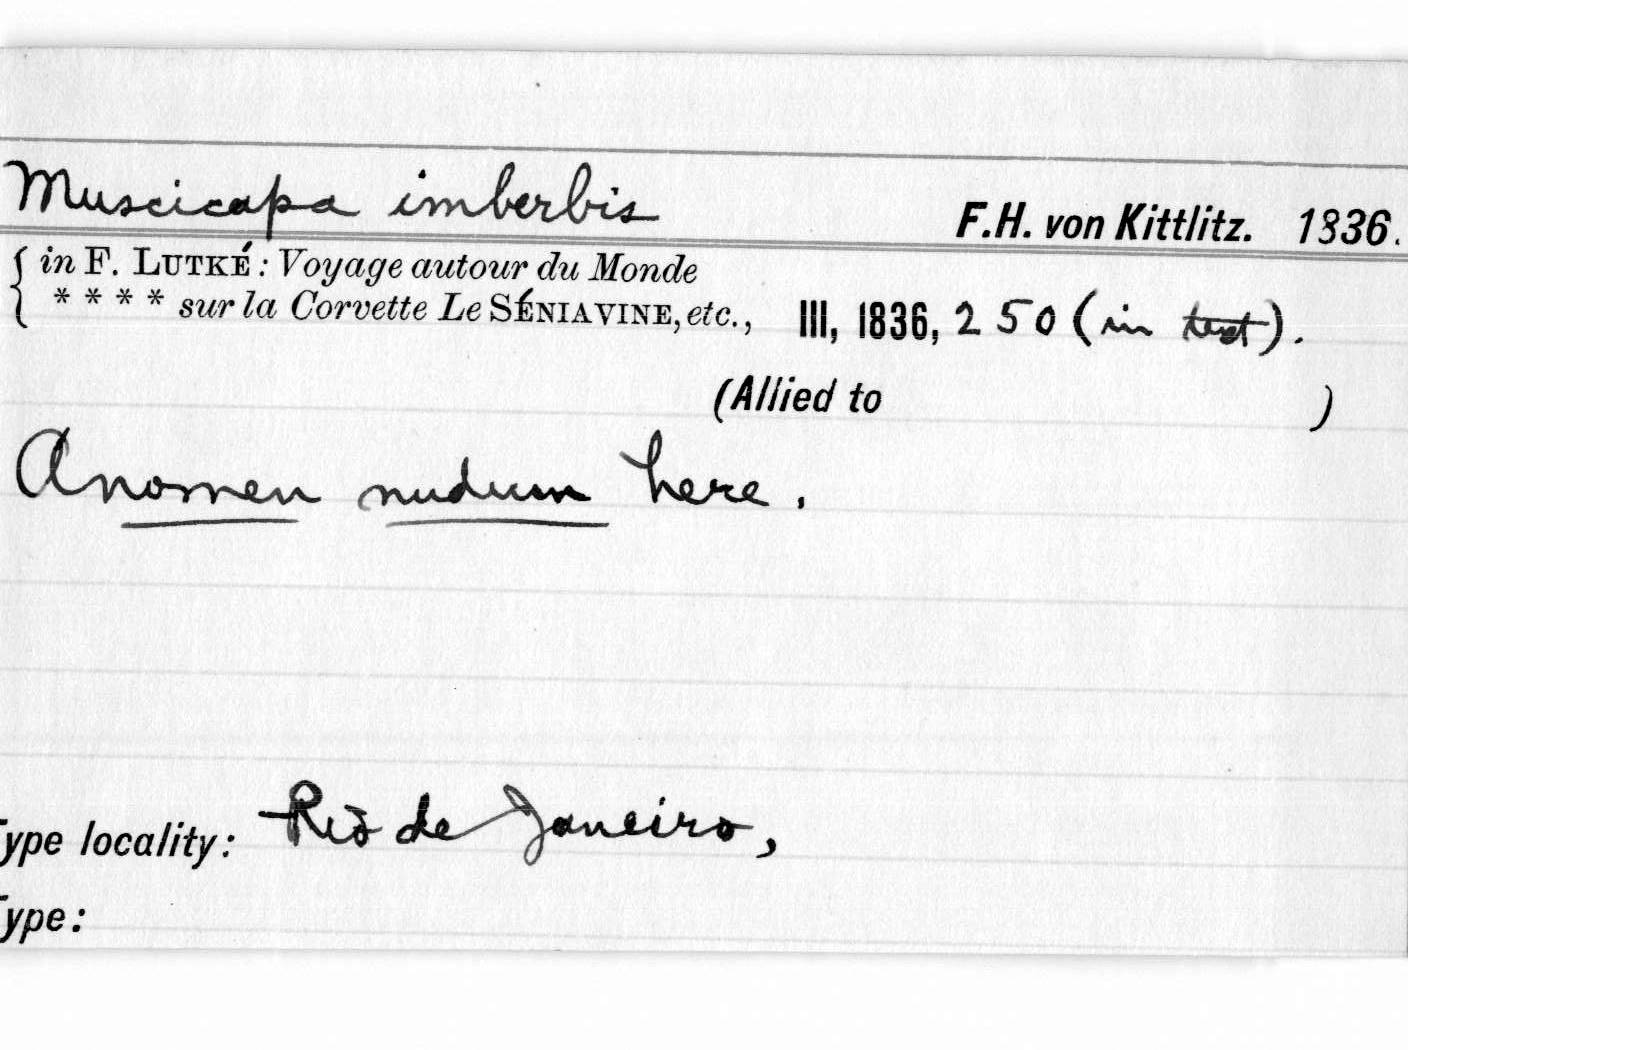 Muscicapa imberbis
F.H. von Kittlitz. 1836.
in F. LUTKÉ: Voyage autour du Monde
* * * * sur la Corvette Le SÉNIAVINE, etc., III, 1836, 250 (in text).
(Allied to )
A nomen nudum here.
Type locality: Rio de Janeiro,
Type: